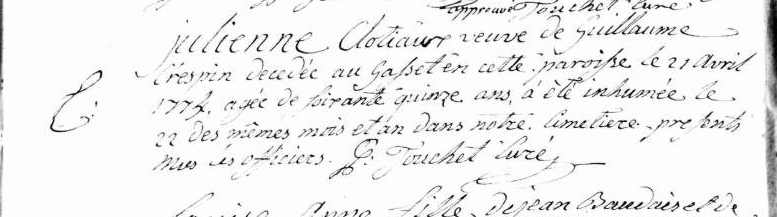 approuvé Touchet curé
julienne Clotiaux veuve de Guillaume
Crespin decedée au Gasset en cette paroisse le 21 Avril
1774, agée de soixante quinze ans, a été inhumée le
22 des mêmes mois et an dans notre cimetiere presents
mes ss officiers. P. Touchet Curé
Anne fille de jean Baudais et de